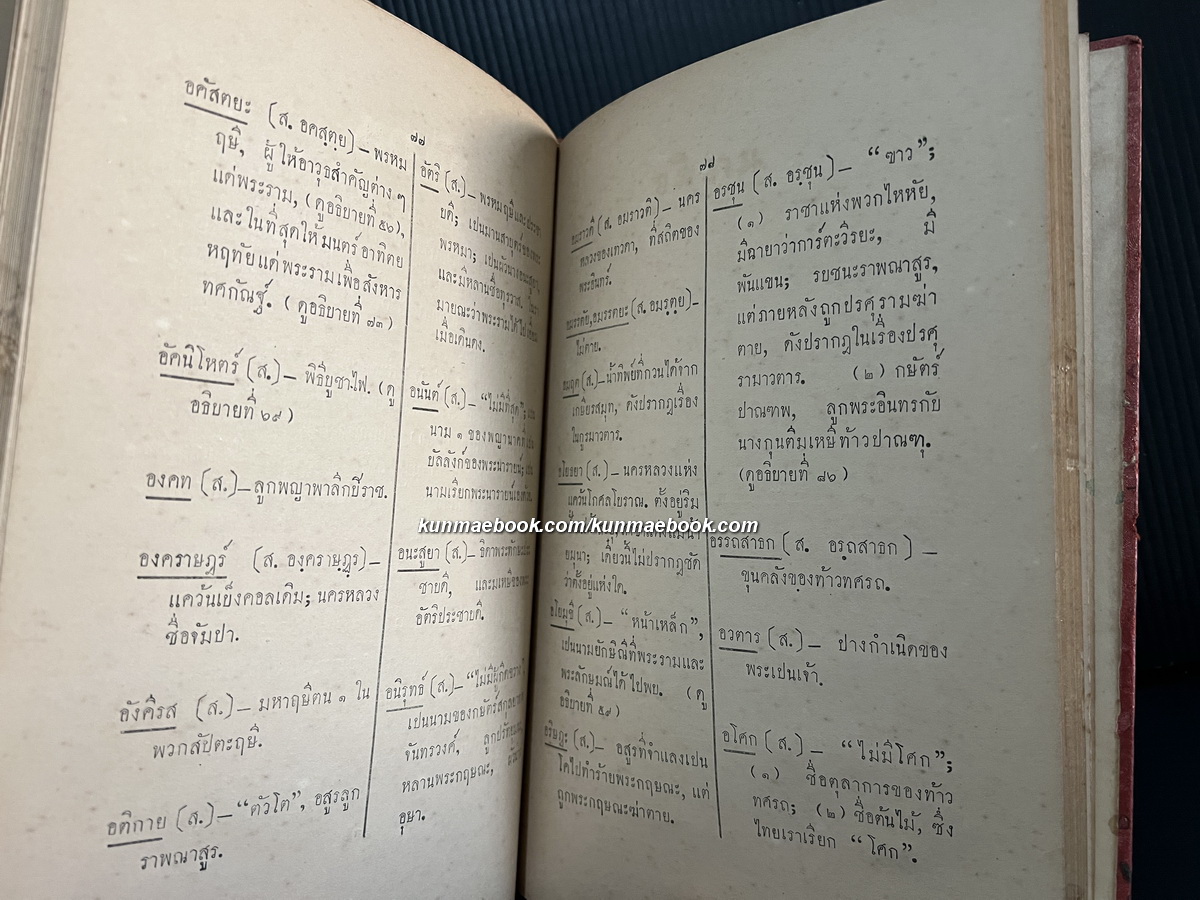 ๗๗
อคัสตยะ (ส. อคสฺตฺย) — พรหม
ฤษี, ผู้ให้อาวุธสำคัญต่าง ๆ
แด่พระราม, (ดูอธิบายที่ ๕๖),
และในที่สุดให้มนตร์อาทิตย
หฤทัยแด่พระรามเพื่อสังหาร
ทศกัณฐ์. (ดูอธิบายที่ ๗๓)
อัคนิโหตร์ (ส.) — พิธีบูชาไฟ. (ดู
อธิบายที่ ๖๙)
องคท (ส.) — ลูกพญาพาลีกยีราช.
องคราษฎร์ (ส. องฺคราษฺฏฺร) —
แคว้นเย็งคอลเดิม; นครหลวง
ชื่อจัมปา.
อังคีรส (ส.) — มหาฤษีตน ๑ ใน
พวกสัปตะฤษี.
อติกาย (ส.) — “ตัวโต”, อสูรลูก
ราพณาสูร.
อัตริ (ส.) — พรหมฤษีและประชา
ยดี; เปนมานสาบุตร์ของพระ
พรหมา; เปนผัวนางอนะสูยา
และมีหลานชื่อทุรราส.
มายณะว่าพระรามได้ไป
เมื่อเดินดง.
อนันต์ (ส.) — “ไม่มีที่สุด”; เปน
นาม ๑ ของพญานาคที่เปน
บัลลังก์ของพระนารายน์; เปน
นามเรียกพระนารายน์เอง
อนะสูยา (ส.) — ธิดาพระทักษะประ
ชาบดี, และมเหษีของ
อัตริประชาบดี.
อนิรุทธ์ (ส.) — “ไม่มีผู้
เปนนามของกษัตร์สกุล
จันทรวงศ์, ลูก
หลานพระกฤษณะ,
อุษา.
๗๘
อมราวดี (ส. อมราวตี) — นคร
หลวงของเทวดา, ที่สถิตของ
พระอินทร์.
อมรรตัย, อมรรตยะ (ส. อมรฺตฺย) —
ไม่ตาย.
อมฤต (ส.) — น้ำทิพย์ที่กวนได้จาก
เกษียรสมุท, ดังปรากฏเรื่อง
ในกูรมาวตาร.
อโยธยา (ส.) — นครหลวงแห่ง
แคว้นโกศลโบราณ. ตั้งอยู่ริม
ยมุนา; เดี๋ยวนี้ไม่ปรากฏชัด
ว่าตั้งอยู่แห่งใด.
อโยมุขี (ส.) — “หน้าเหล็ก”,
เปนนามยักษิณีที่พระรามและ
พระลักษมณ์ได้ไปพบ. (ดู
อธิบายที่ ๕๙)
อริษฎะ (ส.) — อสูรที่จำแลงเปน
โคไปทำร้ายพระกฤษณะ, แต่
ถูกพระกฤษณะฆ่าตาย.
อรชุน (ส. อรฺชุน) — “ขาว”;
(๑) ราชาแห่งพวกไหหัย,
มีฉายาว่าการ์ตะวิรยะ, มี
พันแขน; รบชนะราพณาสูร,
แต่ภายหลังถูกปรศุรามฆ่า
ตาย, ดังปรากฏในเรื่องปรศุ
รามาวตาร. (๒) กษัตร์
ปาณฑพ, ลูกพระอินทรกับ
นางกุนตีมเหษีท้าวปาณฑุ.
(ดูอธิบายที่ ๘๖)
อรรถสาธก (ส. อรฺถสาธก) —
ขุนคลังของท้าวทศรถ.
อวตาร (ส.) — ปางกำเนิดของ
พระเปนเจ้า.
อโศก (ส.) — “ไม่มีโศก”;
(๑) ชื่อตุลาการของท้าว
ทศรถ; (๒) ชื่อต้นไม้, ซึ่ง
ไทยเราเรียก “โศก”.
kunmaebook.com/kunmaebook.com